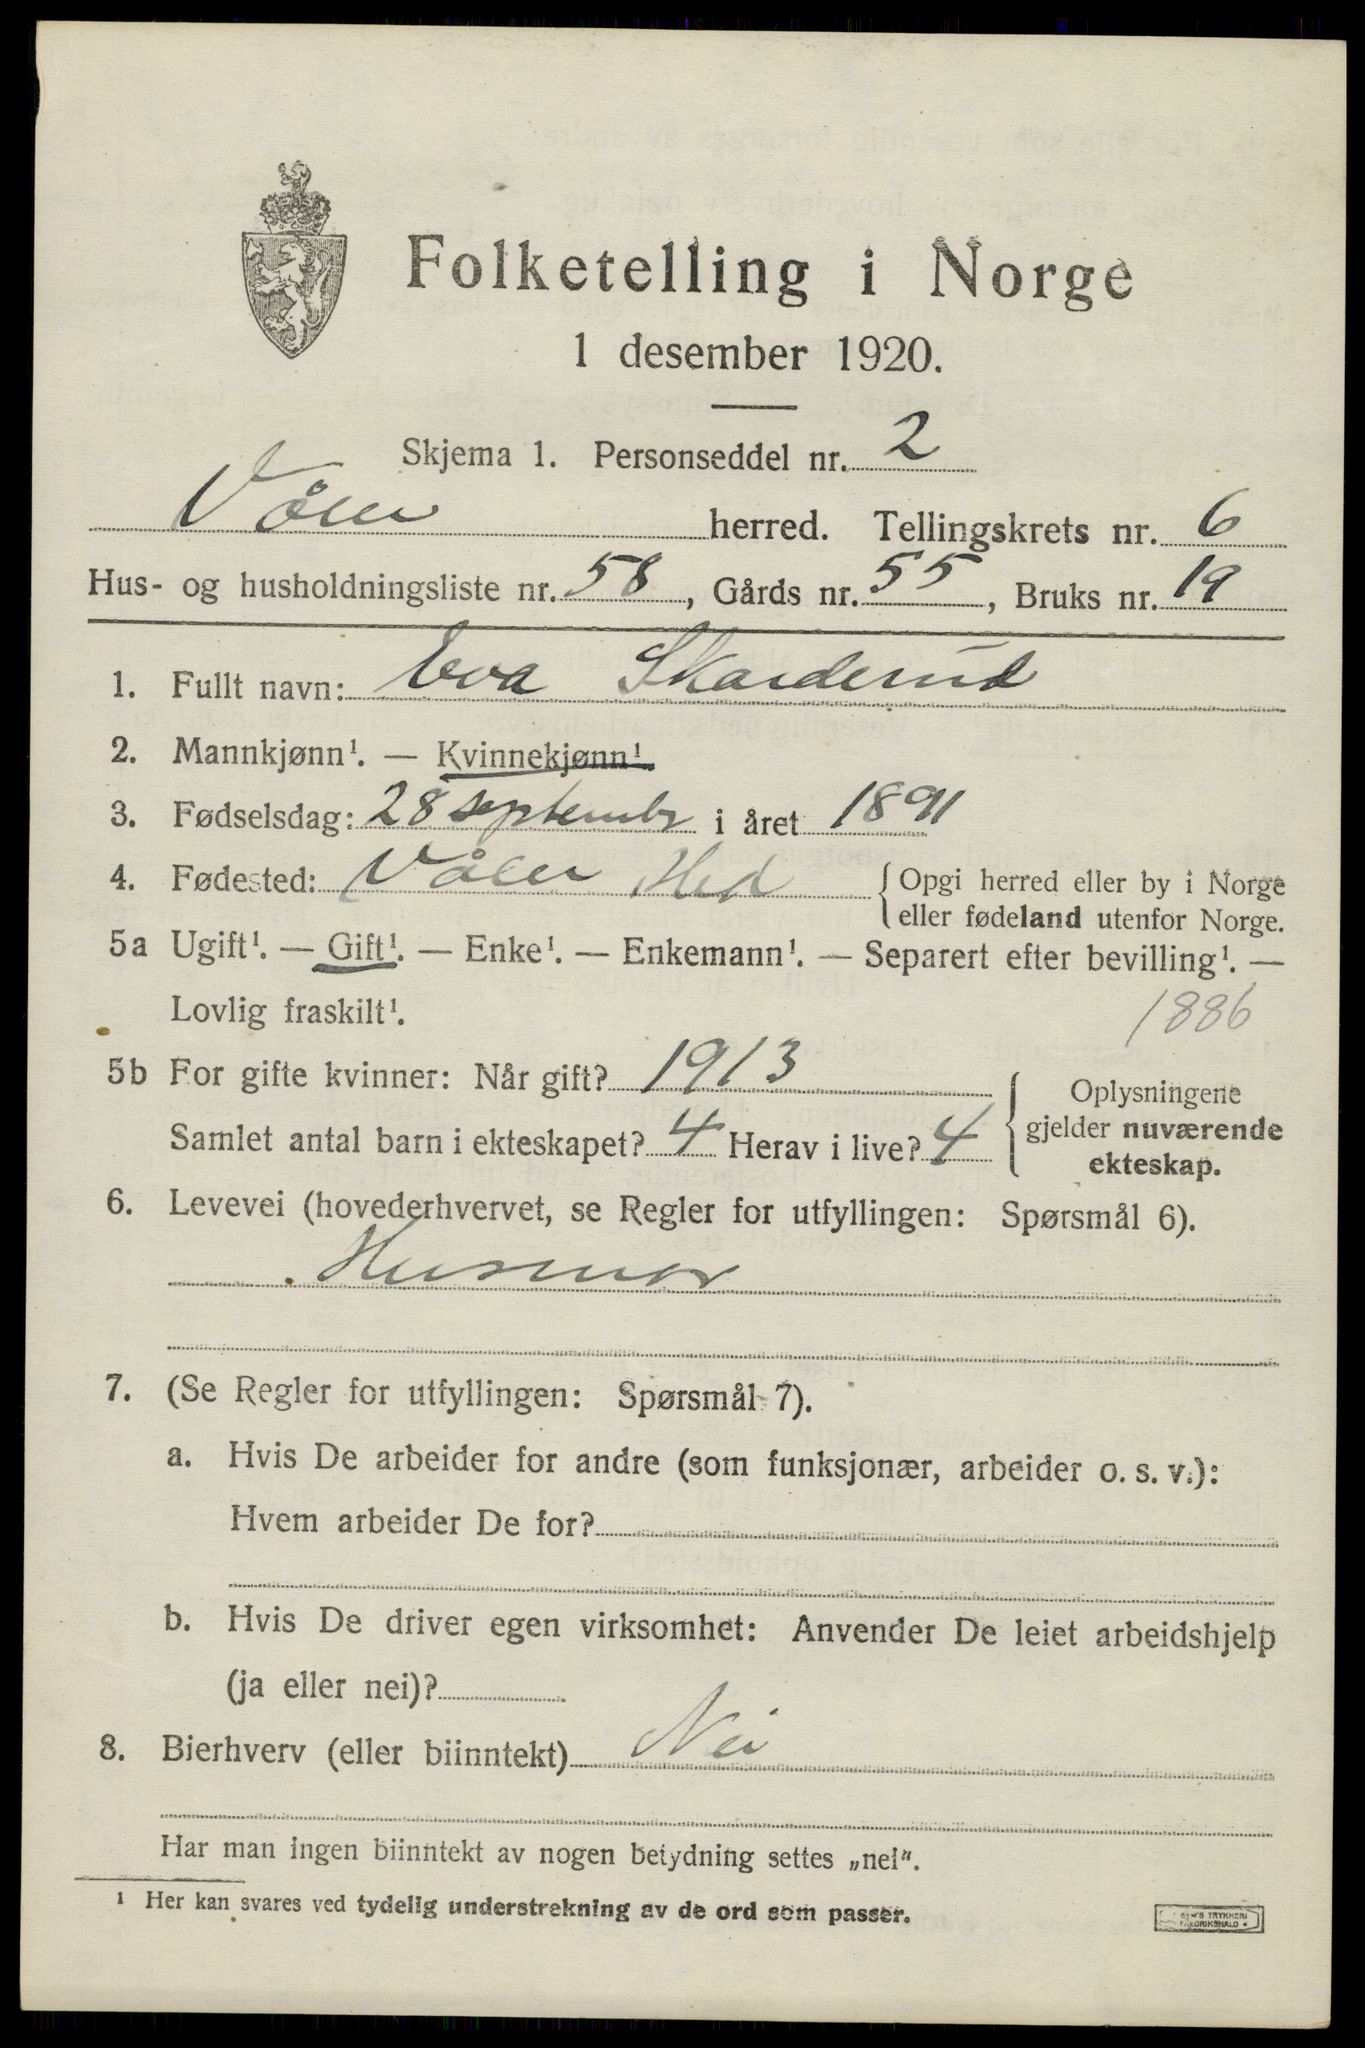 Folketelling i Norge
1 desember 1920.
Skjema 1. Personseddel nr. 2
Våler herred. Tellingskrets nr. 6
Hus- og husholdningsliste nr. 58, Gårds nr. 55, Bruks nr. 19
1. Fullt navn: Eva Skarderud
2. Mannkjønn¹. — Kvinnekjønn¹.
3. Fødselsdag: 28 septembr i året 1891
4. Fødested: Våler Hed {Opgi herred eller by i Norge
eller fødeland utenfor Norge.
5a Ugift¹. — Gift¹. — Enke¹. — Enkemann¹. — Separert efter bevilling¹. —
Lovlig fraskilt¹.
1886
5b For gifte kvinner: Når gift? 1913
Samlet antal barn i ekteskapet? 4 Herav i live? 4
{Oplysningene
gjelder nuværende
ekteskap.
6. Levevei (hovederhvervet, se Regler for utfyllingen: Spørsmål 6).
Husmor
7. (Se Regler for utfyllingen: Spørsmål 7).
a. Hvis De arbeider for andre (som funksjonær, arbeider o. s. v.):
Hvem arbeider De for?
b. Hvis De driver egen virksomhet: Anvender De leiet arbeidshjelp
(ja eller nei)?
8. Bierhverv (eller biinntekt) Nei
Har man ingen biinntekt av nogen betydning settes „nei“.
¹ Her kan svares ved tydelig understrekning av de ord som passer.
TRYKKERI
FREDRIKSHALD